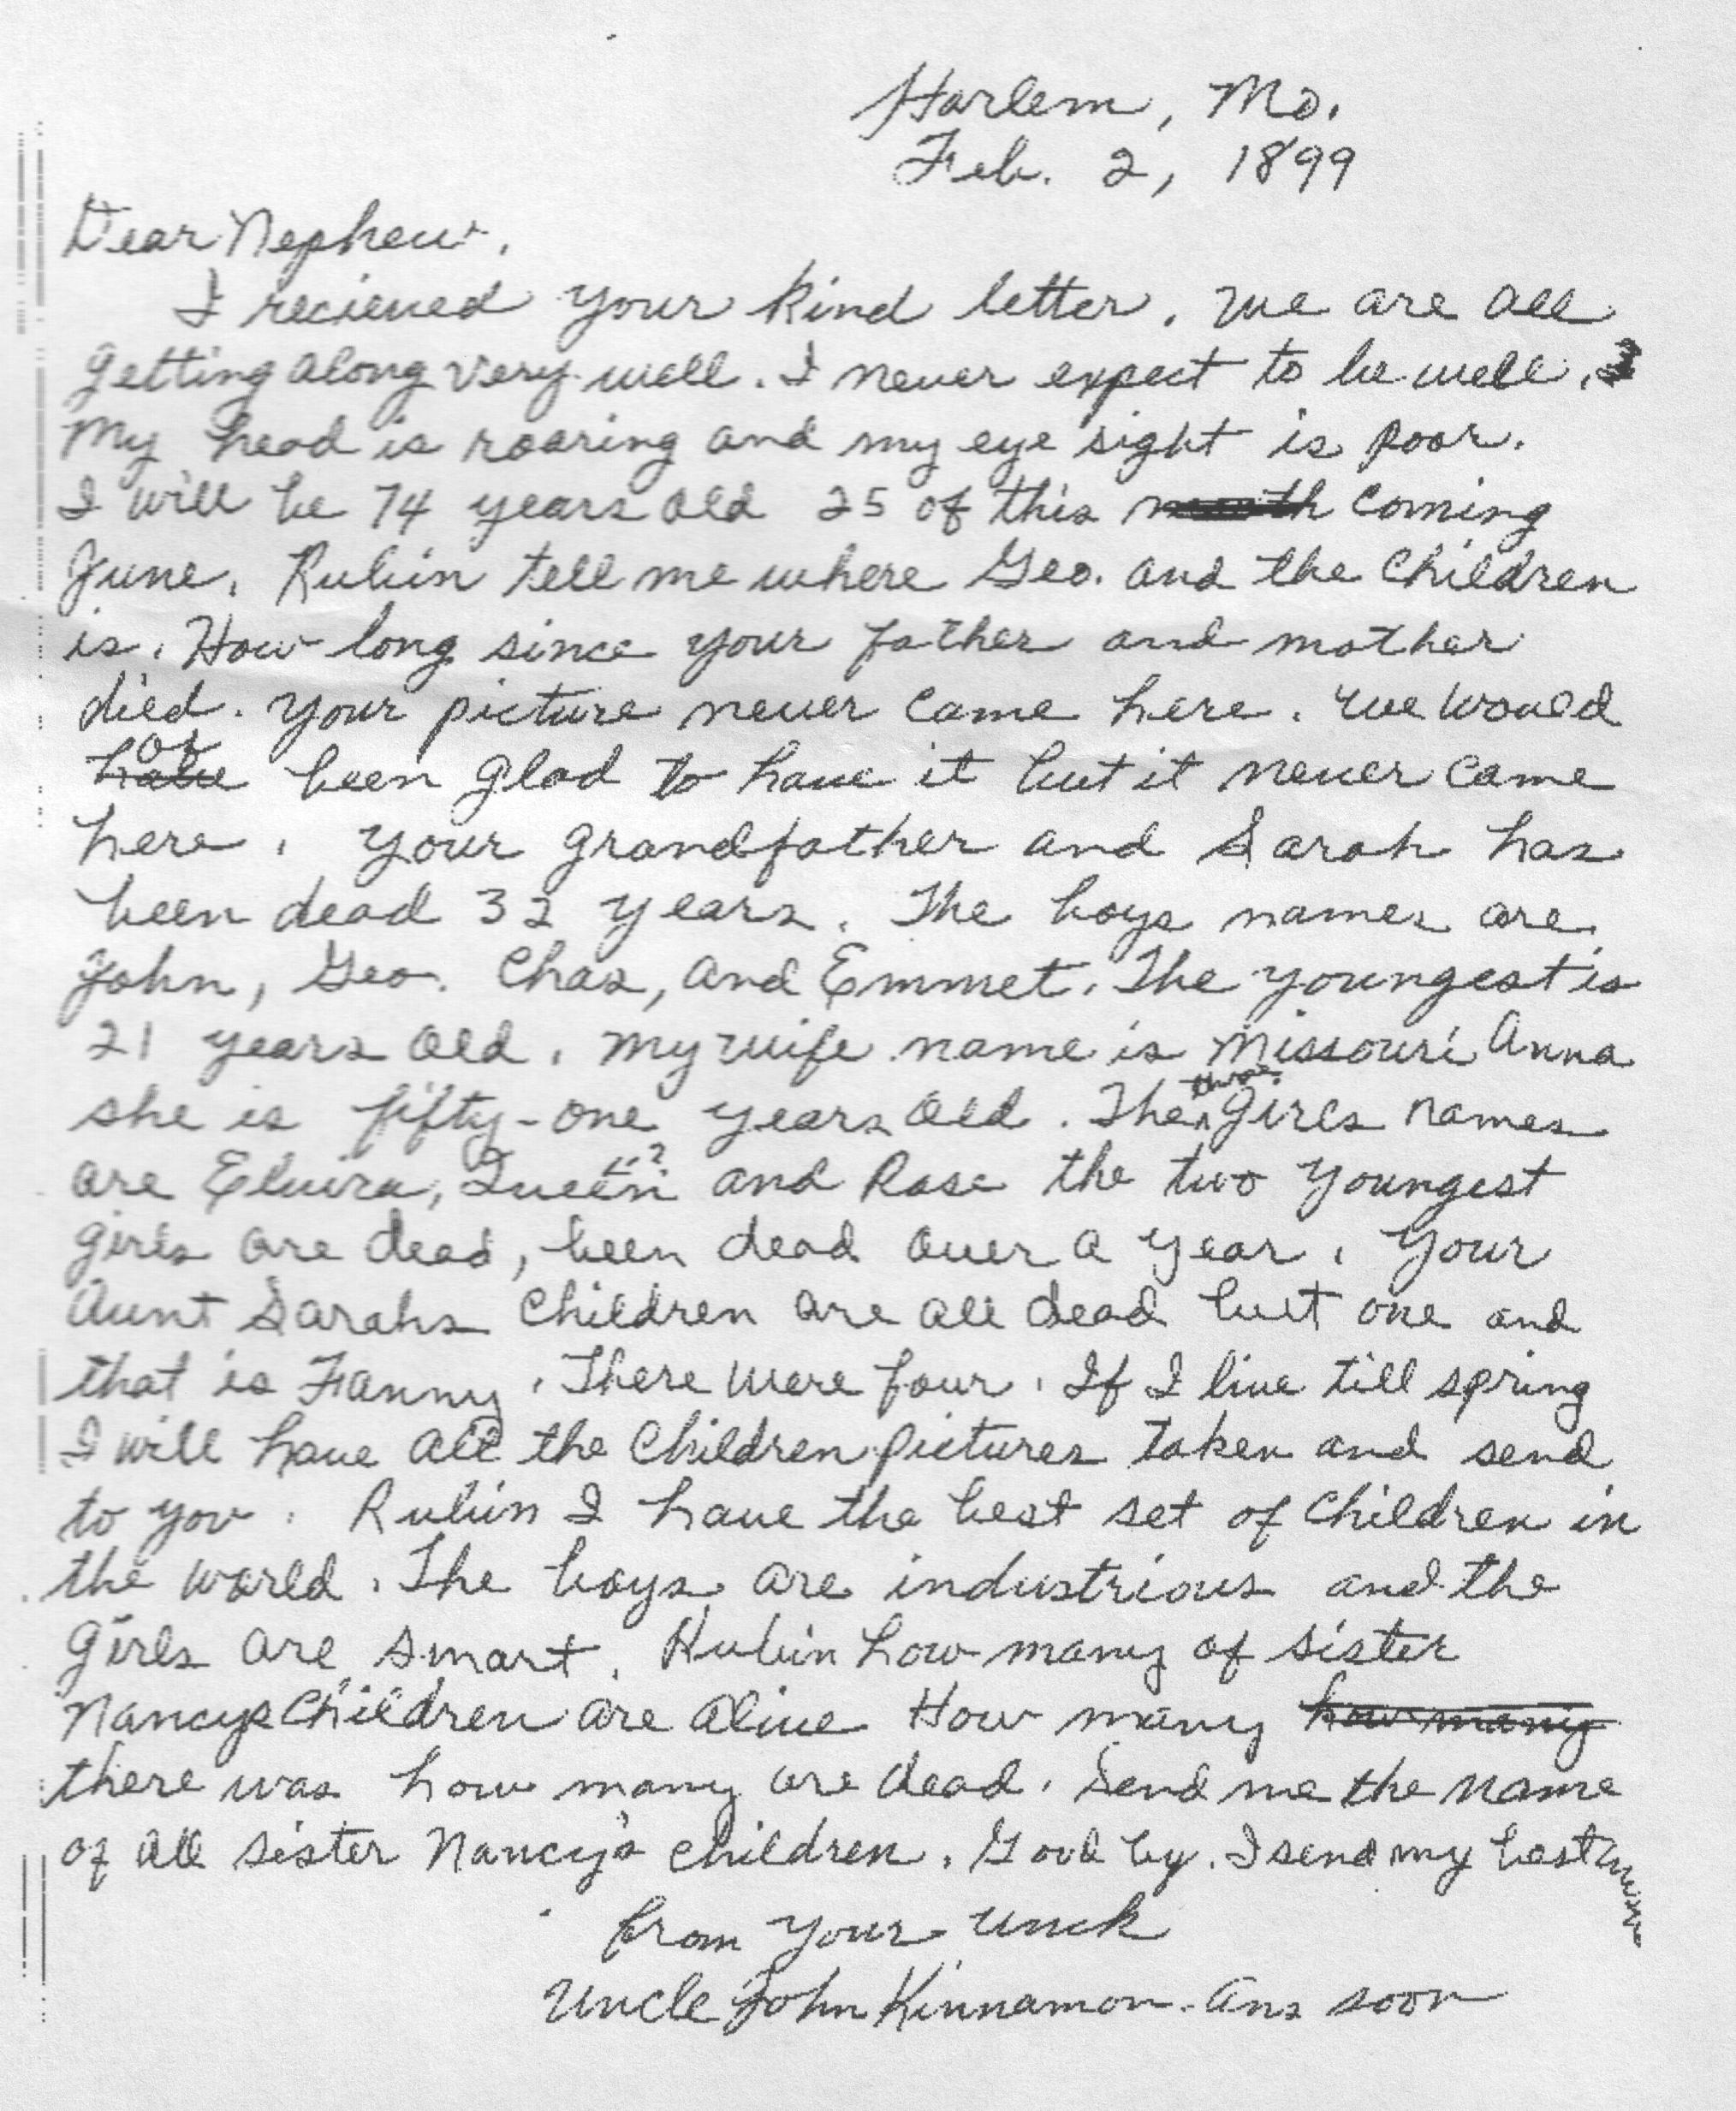 Harlem, Mo.
Feb. 2, 1899
Dear Nephew,
I recieved your kind letter. We are all
getting along very well. I never expect to be well.
My head is roaring and my eye sight is poor.
I will be 74 years old 25 of this month coming
June. Rubin tell me where Geo. and the children
is. How long since your father and mother
died. Your picture never came here. We would
of
have been glad to have it but it never came
here. Your grandfather and Sarah has
been dead 32 years. The boys names are
John, Geo. Chas, and Emmet. The youngest is
21 years old. My wife name is Missouri Anna
she is fifty-one years old. The three girls names
are Elvira, Queen ? and Rose the two youngest
girls are dead, been dead over a year. Your
Aunt Sarahs children are all dead but one and
that is Fanny. There were four. If I live till spring
I will have all the children pictures taken and send
to you. Rubin I have the best set of children in
the world. The boys are industrious and the
girls are smart. Rubin how many of sister
Nancys children are alive How many how many
there was how many are dead. Send me the name
of all sister Nancy's children. Good by. I send my best
from your Unck
Uncle John Kinnamon - Ans soon